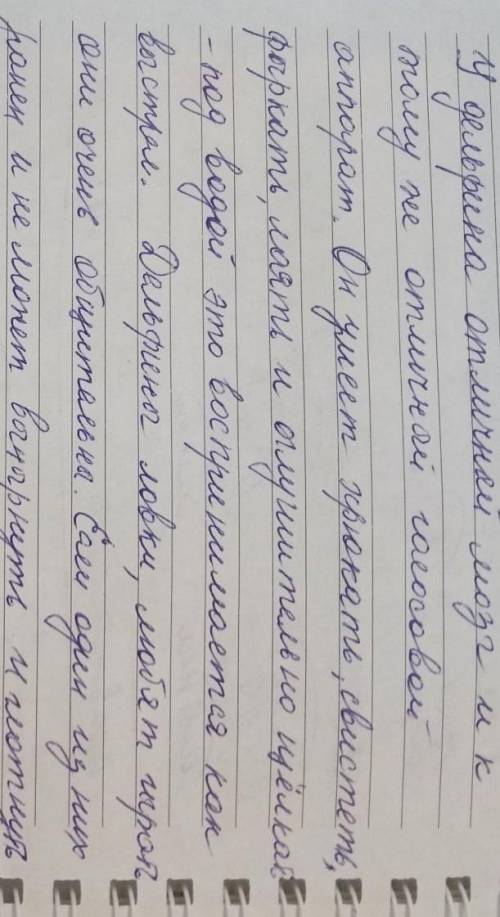 У дельфина отличный мозг и к
тому же отличной голосовой
аппарат. Он умеет хрюкать, свистеть,
фыркать, лаять и оглушительно щёлкать
- под водой это воспринимается как
выстрел. Дельфины ловки, любят играть
они очень общительны. Если один из них
ранен и не может вынырнуть и глотнуть